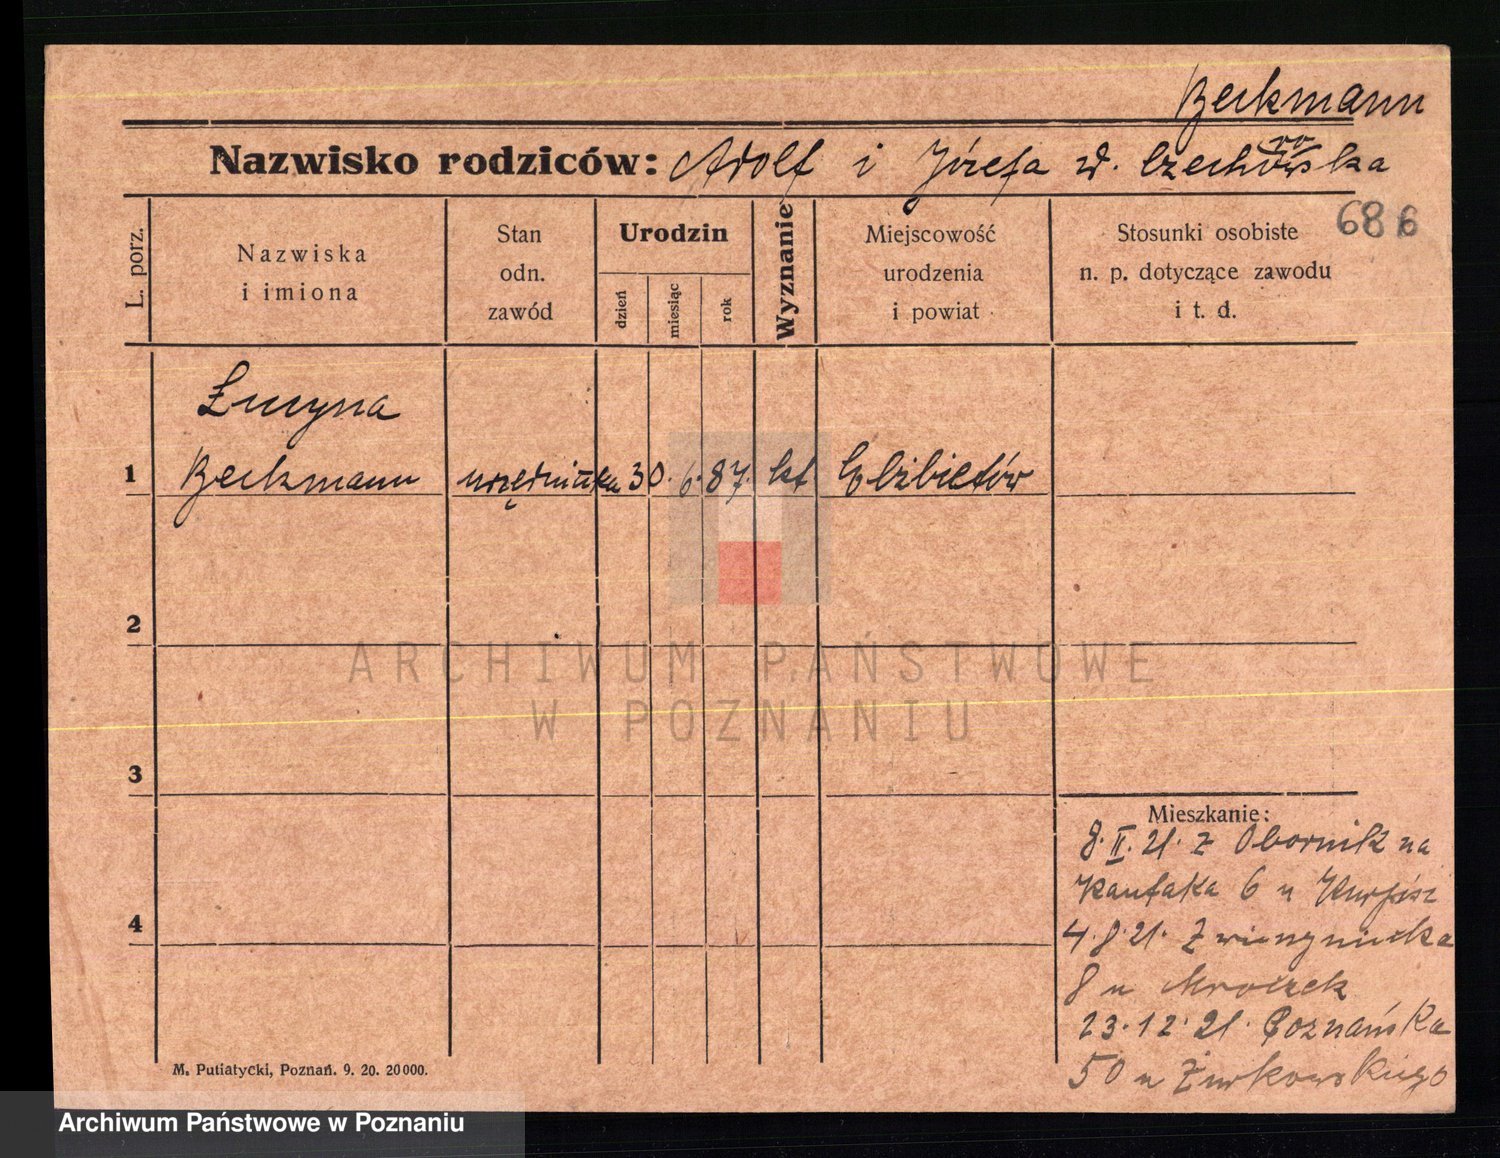 Beckmann
Nazwisko rodziców: Adolf i Józefa d. Czechowska
ro
686
L. porz.
Nazwiska
i imiona
Stan
odn.
zawód
Urodzin
dzień
miesiąc
rok
Wyznanie
Miejscowość
urodzenia
i powiat
Stosunki osobiste
n. p. dotyczące zawodu
i t. d.
Łucyna
1 Beckmann urzędniczka 30. 6. 87. kt. Elżbietów
2
3
4
Mieszkanie:
8. II. 21. z Obornik na
Kantaka 6 u
4.8.21.
8 u Mroczek
23.12.21. Poznańska
50 u Żurkowskiego
M. Putiatycki, Poznań. 9. 20. 20000.
ARCHIWUM PAŃSTWOWE
W POZNANIU
Archiwum Państwowe w Poznaniu